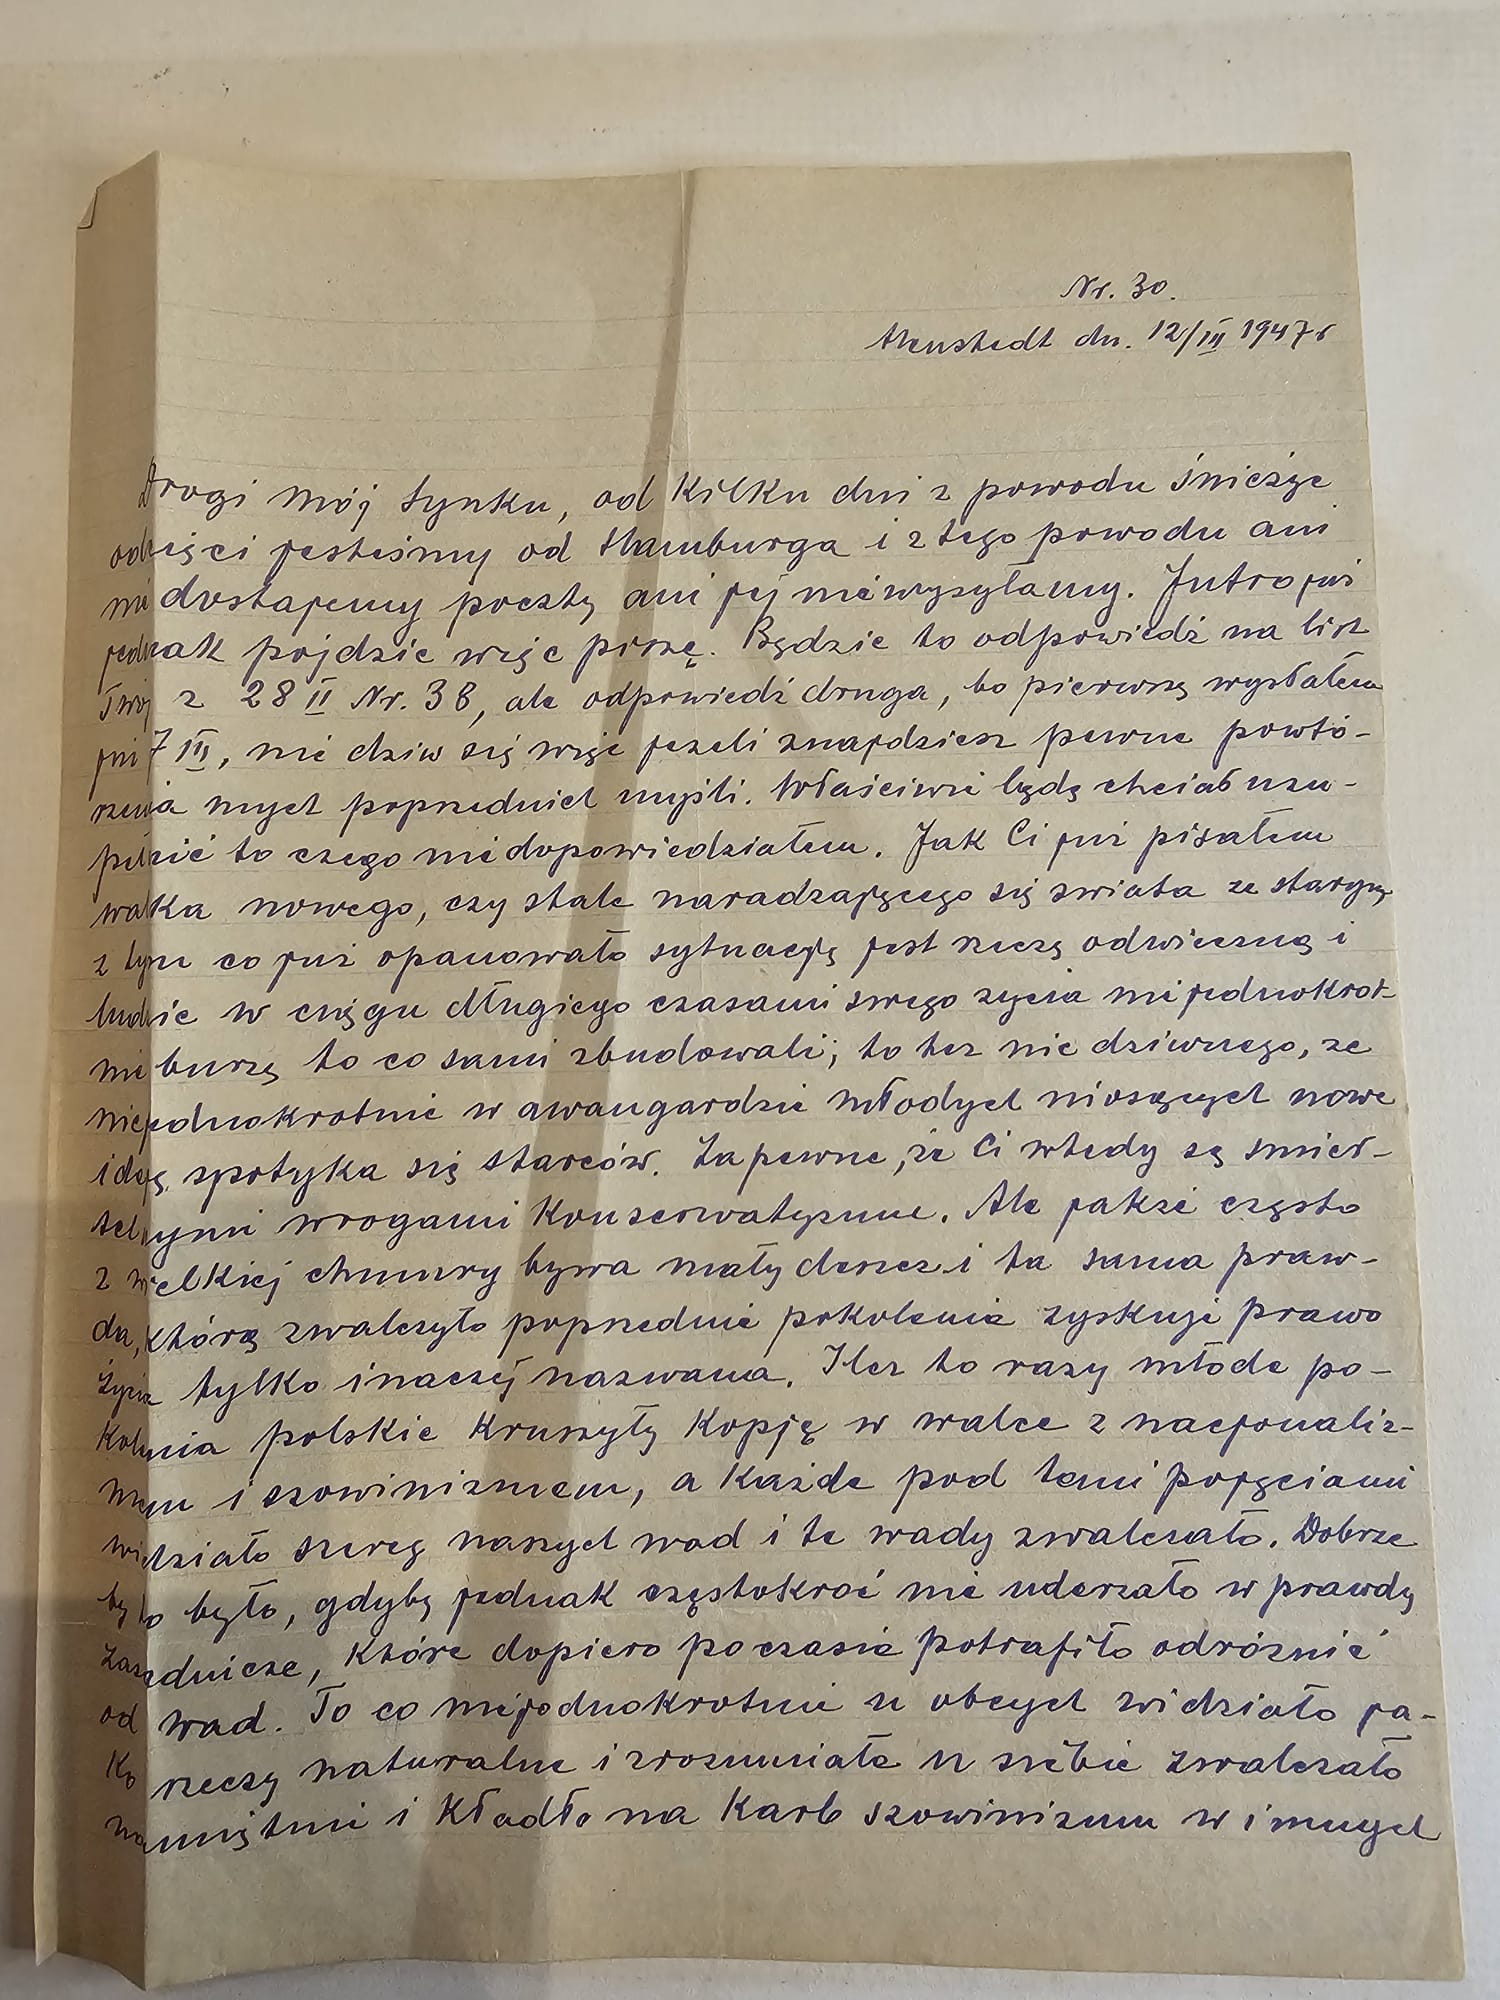 Nr. 30.
dn. 12/III 1947 r
Drogi mój synku, od kilku dni z powodu śnieżyc
odcięci jesteśmy od Hamburga i z tego powodu ani
nie dostajemy poczty ani jej nie wysyłamy. Jutro już
jednak pójdzie więc piszę. Będzie to odpowiedź na list
Twój z 28 II Nr. 38, ale odpowiedź druga, bo pierwszą wysłałem
już 7 III, nie dziw się więc jeżeli znajdziesz pewne powtó-
rzenia mych poprzednich myśli. Właściwie będę chciał uzu-
pełnić to czego nie dopowiedziałem. Jak Ci już pisałem
walka nowego, czy stale naradzającego się świata ze starym,
z tym co już opanowało sytuację jest rzeczą odwieczną i
ludzie w ciągu długiego czasami swego życia niejednokrot-
nie burzą to co sami zbudowali; to też nic dziwnego, że
niejednokrotnie w awangardzie młodych niosących nowe
ideę spotyka się starców. Zapewne, że Ci wtedy są śmier-
telnymi wrogami konserwatyzmu. Ale jakże często
z wielkiej chmury bywa mały deszcz i ta sama praw-
da, którą zwalczyło poprzednie pokolenie zyskuje prawo
życia tylko inaczej nazwana. Ileż to razy młode po-
kolenia polskie kruszyły kopję w walce z nacjonaliz-
mem i szowinizmem, a każde pod temi pojęciami
widziało szereg naszych wad i te wady zwalczało. Dobrze
by to było, gdyby jednak częstokroć nie uderzało w prawdy
zasadnicze, które dopiero po czasie potrafiło odróżnić
od wad. To co niejednokrotnie u obcych widziało ja-
ko rzeczy naturalne i zrozumiałe u siebie zwalczało
namiętnie i kładło na karb szowinizmu w innych